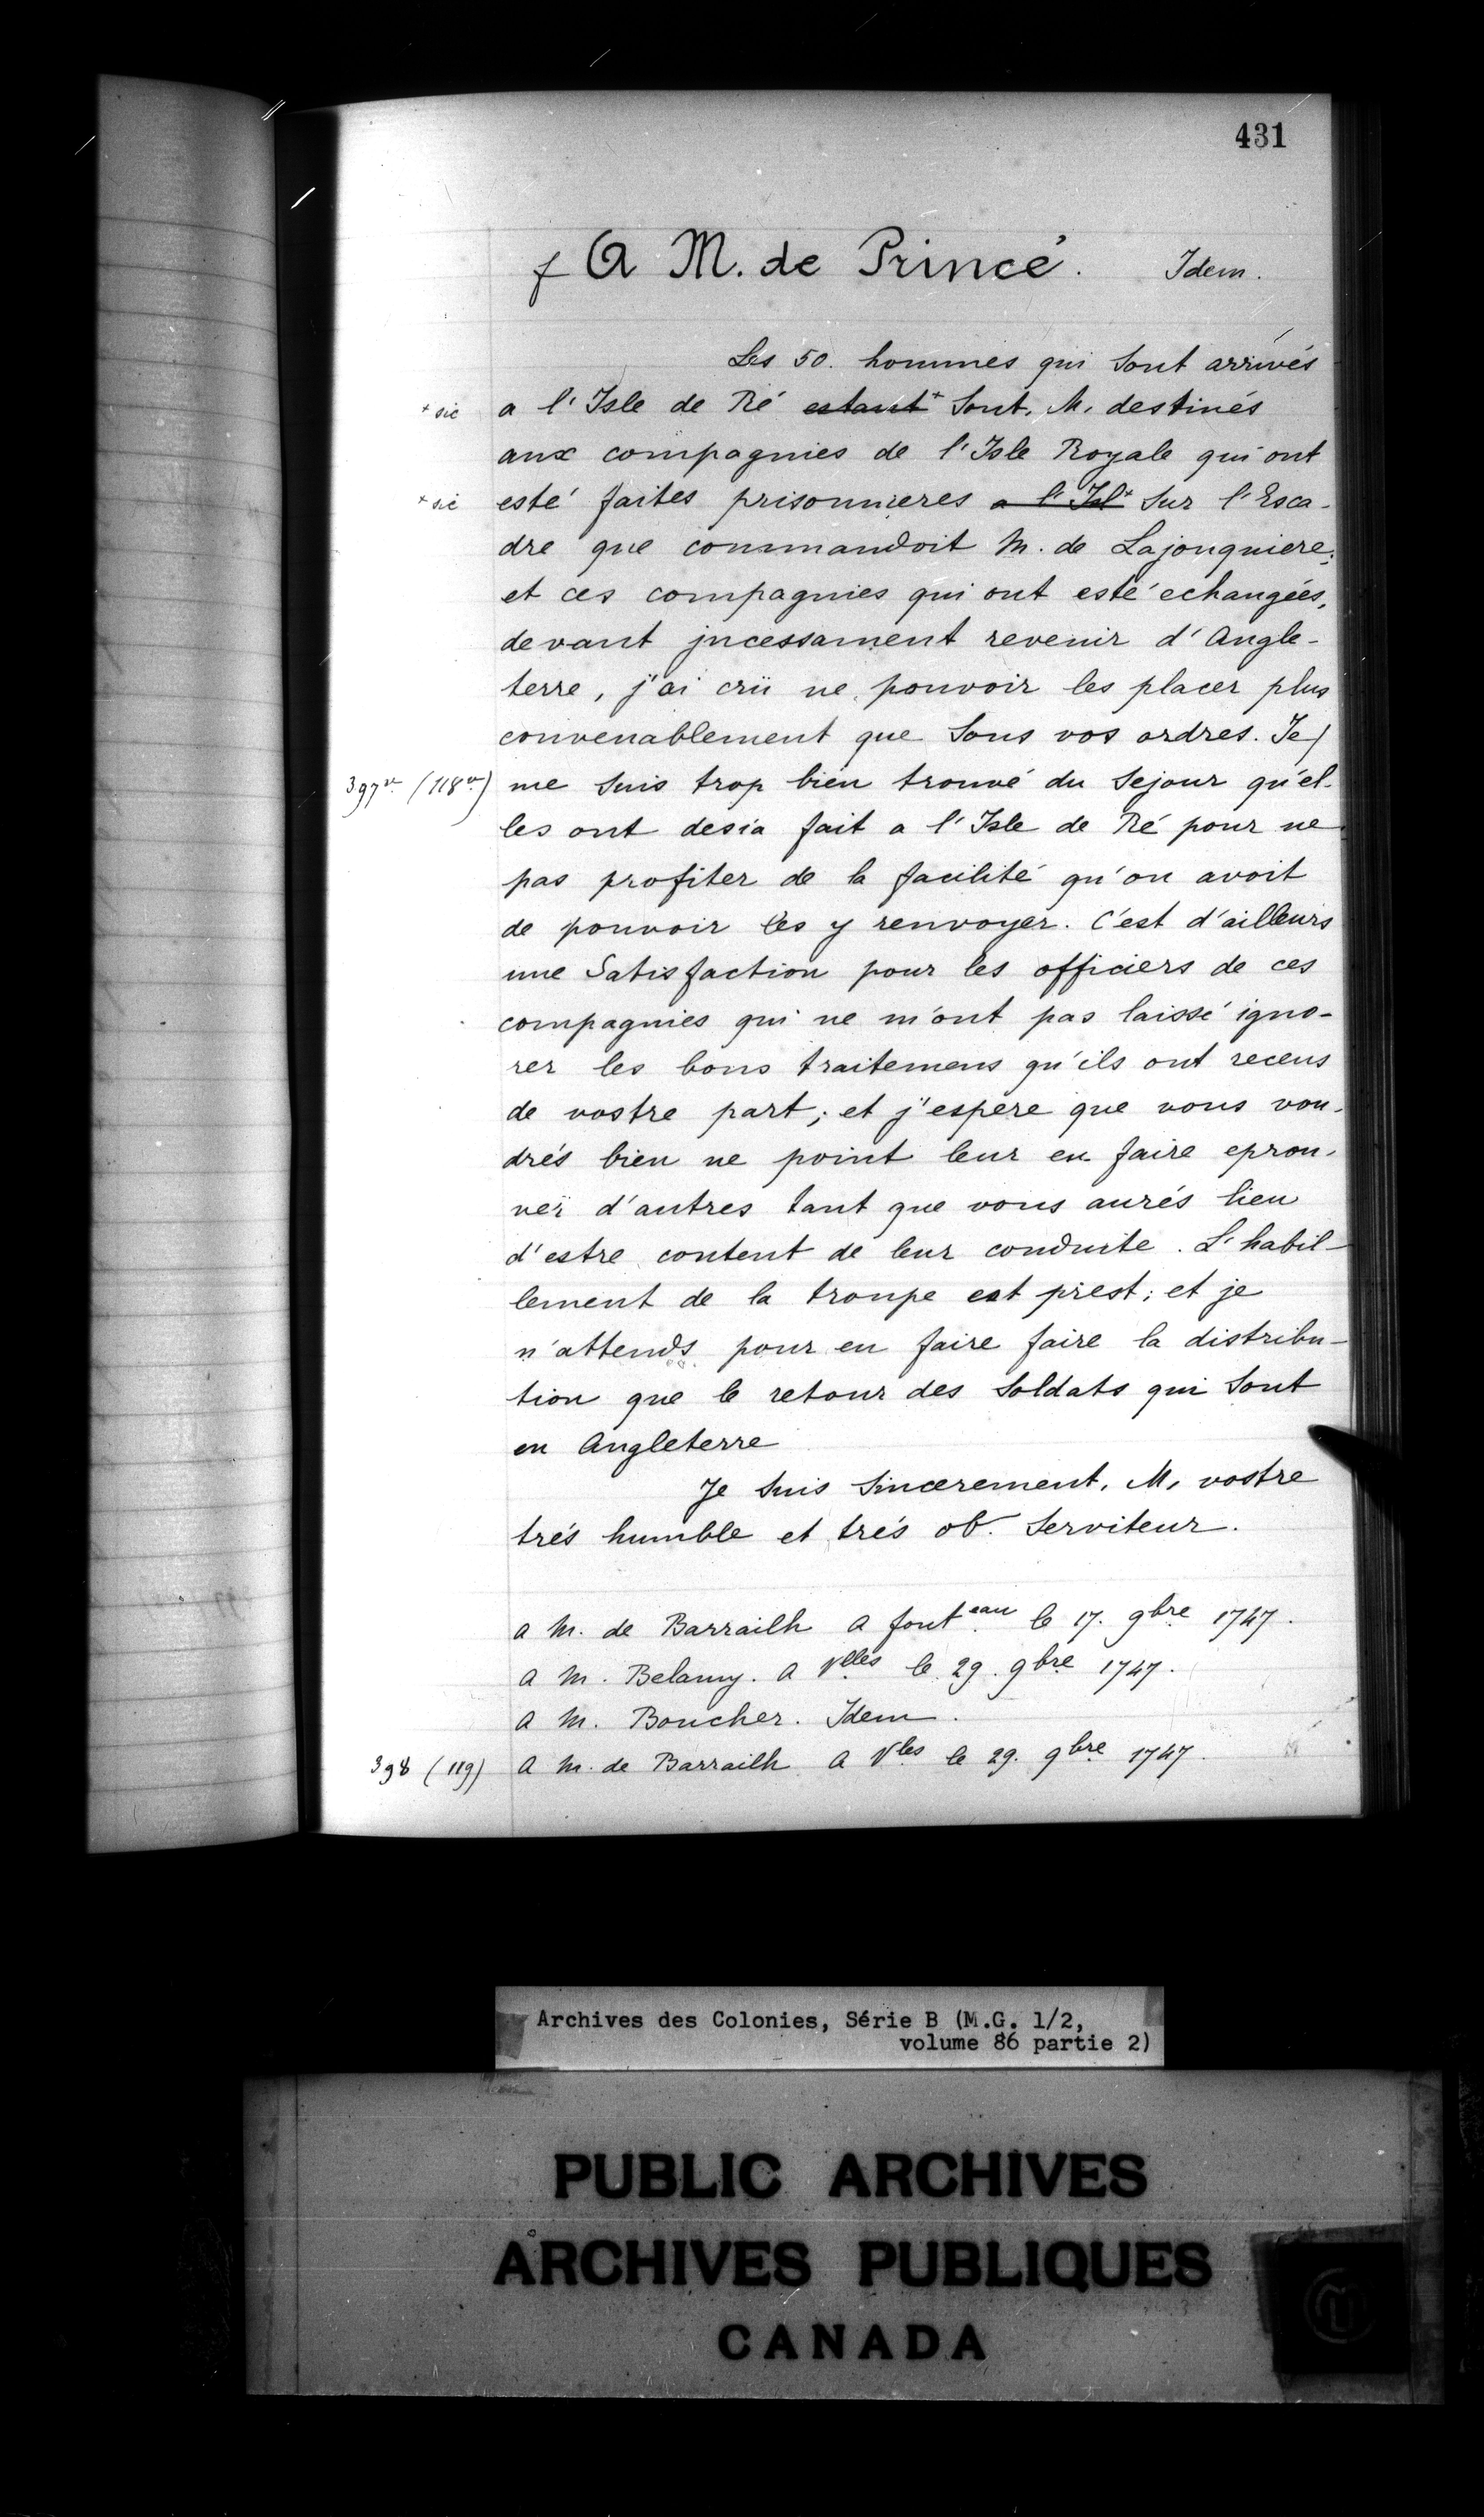 431
f A M. de Princé. Idem.
Les 50. hommes qui Sont arrivés
+ sic a l'Isle de Ré estant+ Sont, M, destinés
aux compagnies de l'Isle Royale qui ont
+ sic esté faites prisonnieres a l'Isl+ Sur l'Esca-
dre que commandoit M. de Lajonquiere;
et ces compagnies qui ont esté echangées,
devant jncessament revenir d'Angle-
terre, j'ai crü ne pouvoir les placer plus
convenablement que Sous vos ordres. Je/
397vo (118vo) me Suis trop bien trouvé du Sejour qu'el-
les ont desia fait a l'Isle de Ré pour ne
pas profiter de la facilité qu'on avoit
de pouvoir les y renvoyer. C'est d'ailleurs
une Satisfaction pour les officiers de ces
compagnies qui ne m'ont pas laissé igno-
rer les bons traitemens qu'ils ont receus
de vostre part; et j'espere que vous vou-
drés bien ne point leur en faire eprou-
ver d'autres tant que vous aurés lieu
d'estre content de leur conduite. L'habil-
lement de la troupe est prest; et je
n'attends pour en faire faire la distribu-
tion que le retour des Soldats qui Sont
en Angleterre
Je Suis Sincerement, M, vostre
trés humble et trés ob. Serviteur.
a M. de Barrailh a fonteau le 17. 9bre 1747.
a M. Belamy. a Vlles le 29. 9bre 1747.
a M. Boucher. Idem.
398 (119) a M. de Barrailh a Vles le 29. 9bre 1747.
Archives des Colonies, Série B (M.G. 1/2,
volume 86 partie 2)
PUBLIC ARCHIVES
ARCHIVES PUBLIQUES
CANADA